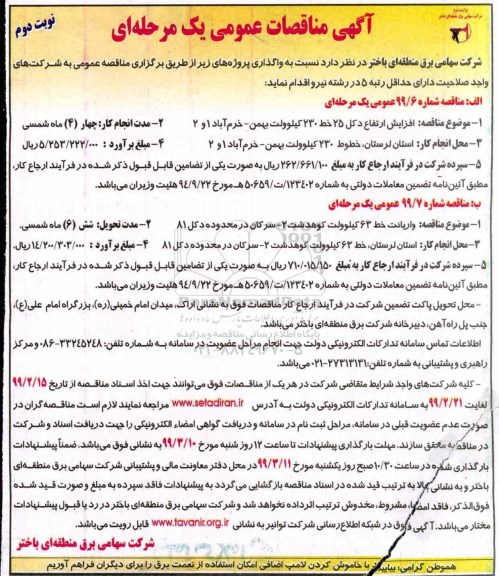 آگهی مناقصات عمومی یک مرحله‌ای
نوبت دوم
شرکت سهامی برق منطقه‌ای باختر
شرکت سهامی برق منطقه‌ای باختر در نظر دارد نسبت به واگذاری پروژه‌های زیر از طریق برگزاری مناقصه عمومی به شرکت‌های
واجد صلاحیت دارای حداقل رتبه ۵ در رشته نیرو اقدام نماید:
الف: مناقصه شماره ۹۹/۶ عمومی یک مرحله‌ای
۱-موضوع مناقصه: افزایش ارتفاع دکل ۲۵ خط ۲۳۰ کیلوولت بهمن- خرم‌آباد ۱ و ۲ ۲-مدت انجام کار: چهار (۴) ماه شمسی
۳-محل انجام کار: استان لرستان، خطوط ۲۳۰ کیلوولت بهمن- خرم‌آباد ۱ و ۲ ۴-مبلغ برآورد : ۵/۲۵۳/۲۲۲/۰۰۰ ریال
۵-سپرده شرکت در فرآیند ارجاع کار به مبلغ ۲۶۲/۶۶۱/۱۰۰ ریال به صورت یکی از تضامین قابل قبول ذکر شده در فرآیند ارجاع کار،
مطابق آئین‌نامه تضمین معاملات دولتی به شماره ۱۲۳۴۰۲/ت۵۰۶۵۹هـ مورخ ۹۴/۹/۲۲ هئیت وزیران می‌باشد.
ب: مناقصه شماره ۹۹/۷ عمومی یک مرحله‌ای
۱-موضوع مناقصه: واریانت خط ۶۳ کیلوولت کوهدشت ۲-سرکان در محدوده دکل ۸۱ ۲-مدت تحویل: شش (۶) ماه شمسی
۳-محل انجام کار: استان لرستان، خط ۶۳ کیلوولت کوهدشت ۲- سرکان در محدوده دکل ۸۱ ۴-مبلغ برآورد : ۱۴/۲۰۰/۳۰۳/۰۰۰ ریال.
۵-سپرده شرکت در فرآیند ارجاع کار به مبلغ ۷۱۰/۰۱۵/۱۵۰ ریال به صورت یکی از تضامین قابل قبول ذکر شده در فرآیند ارجاع کار،
مطابق آئین‌نامه تضمین معاملات دولتی به شماره ۱۲۳۴۰۲/ت۵۰۶۵۹هـ مورخ ۹۴/۹/۲۲ هئیت وزیران می‌باشد.
-محل تحویل پاکت تضمین شرکت در فرآیند ارجاع کار مناقصات فوق به نشانی اراک، میدان امام خمینی(ره)، بزرگراه امام علی(ع)،
جنب پل راه‌آهن، دبیرخانه شرکت برق منطقه‌ای باختر می‌باشد.
اطلاعات تماس سامانه تدارکات الکترونیکی دولت جهت انجام مراحل عضویت در سامانه به شماره تلفن: ۳۳۲۴۵۲۴۸-۰۸۶ و مرکز
راهبری و پشتیبانی به شماره تلفن: ۲۷۳۱۳۱۳۱-۰۲۱ می‌باشد.
- کلیه شرکت‌های واجد شرایط متقاضی شرکت در هر یک از مناقصات فوق می‌توانند جهت اخذ اسناد مناقصه از تاریخ ۹۹/۲/۱۵
لغایت ۹۹/۲/۲۱ به سامانه تدارکات الکترونیکی دولت به آدرس www.setadiran.ir مراجعه نمایند لازم است مناقصه‌گران در
صورت عدم عضویت قبلی در سامانه، مراحل ثبت نام در سامانه و دریافت گواهی امضاء الکترونیکی را جهت دریافت اسناد و شرکت
در مناقصه محقق سازند. مهلت بارگذاری پیشنهادات تا ساعت ۱۲ روز شنبه مورخ ۹۹/۳/۱۰ به نشانی فوق می‌باشد، ضمناً پیشنهادات
بارگذاری شده در ساعت ۱۰/۳۰ صبح روز یکشنبه مورخ ۹۹/۳/۱۱ در محل دفتر معاونت مالی و پشتیبانی شرکت سهامی برق منطقه‌ای
باختر و به نشانی بالا به ترتیب قید شده در اسناد مناقصه بازگشایی می‌گردد به پیشنهادات فاقد سپرده به مبلغ و صورت قید شده
فوق‌الذکر، فاقد امضاء، مشروط، مخدوش ترتیب اثر داده نخواهد شد و شرکت سهامی برق منطقه‌ای باختر در رد یا قبول پیشنهادات
مختار می‌باشد. آگهی فوق در شبکه اطلاع‌رسانی شرکت توانیر به نشانی www.tavanir.org.ir قابل رویت می‌باشد.
شرکت سهامی برق منطقه‌ای باختر
هموطن گرامی: بیایید با خاموش کردن لامپ اضافی امکان استفاده از نعمت برق را برای دیگران فراهم آوریم